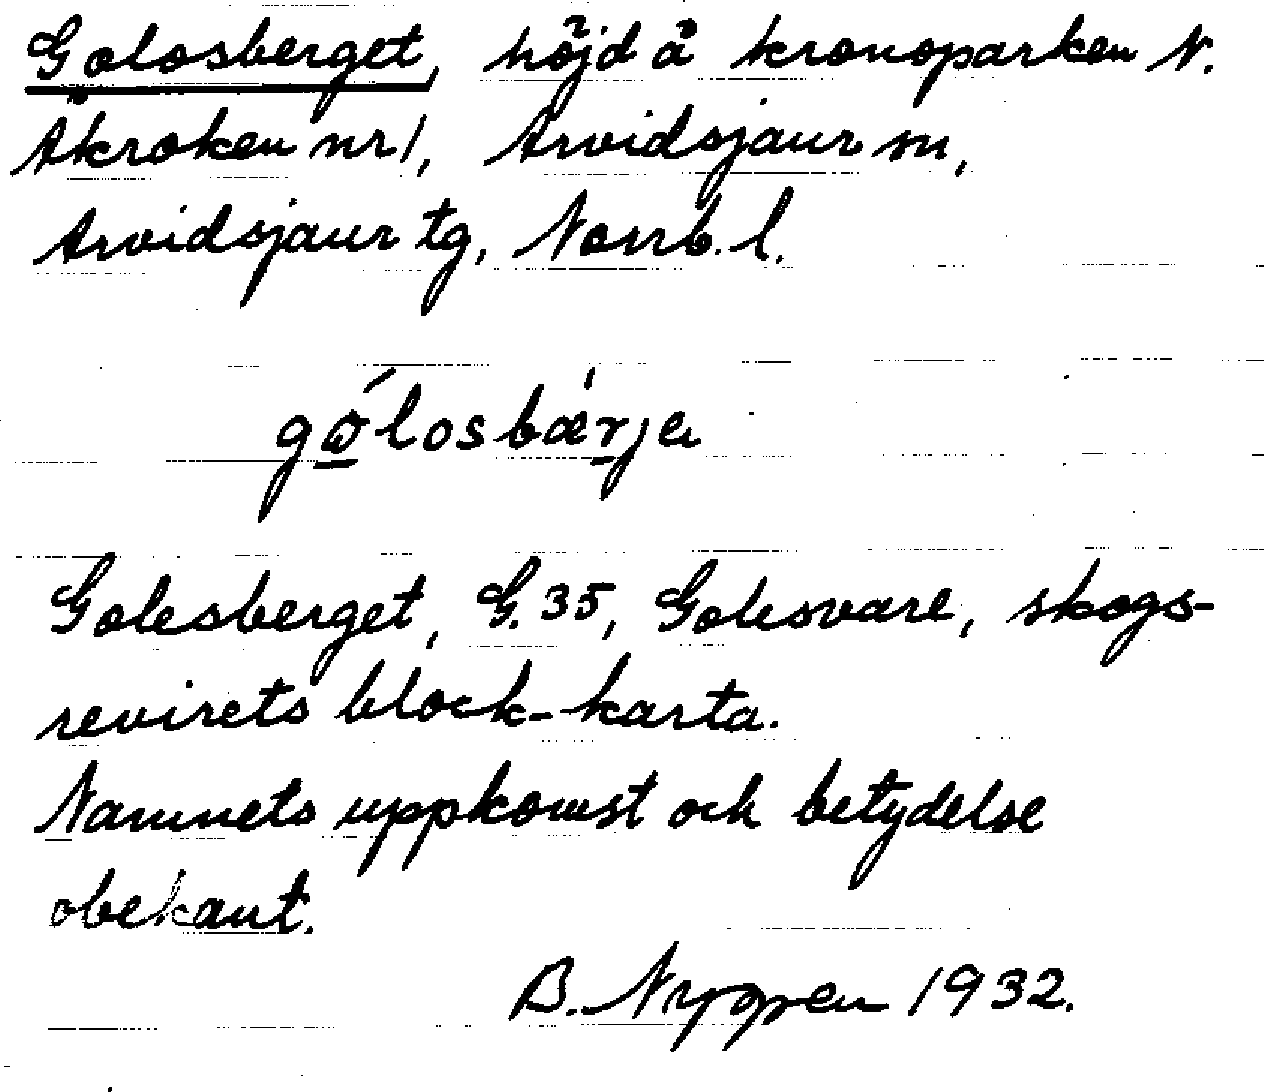 Golosberget, höjd å kronoparken N.
Åkroken nr 1, Arvidsjaur sn,
Arvidsjaur tg, Norrb. l.
gó̠losbær̠ja
Golesberget, G. 35, Golesvare, skogs-
revirets block-karta.
Namnets uppkomst och betydelse
obekant.
B. Nygren 1932.